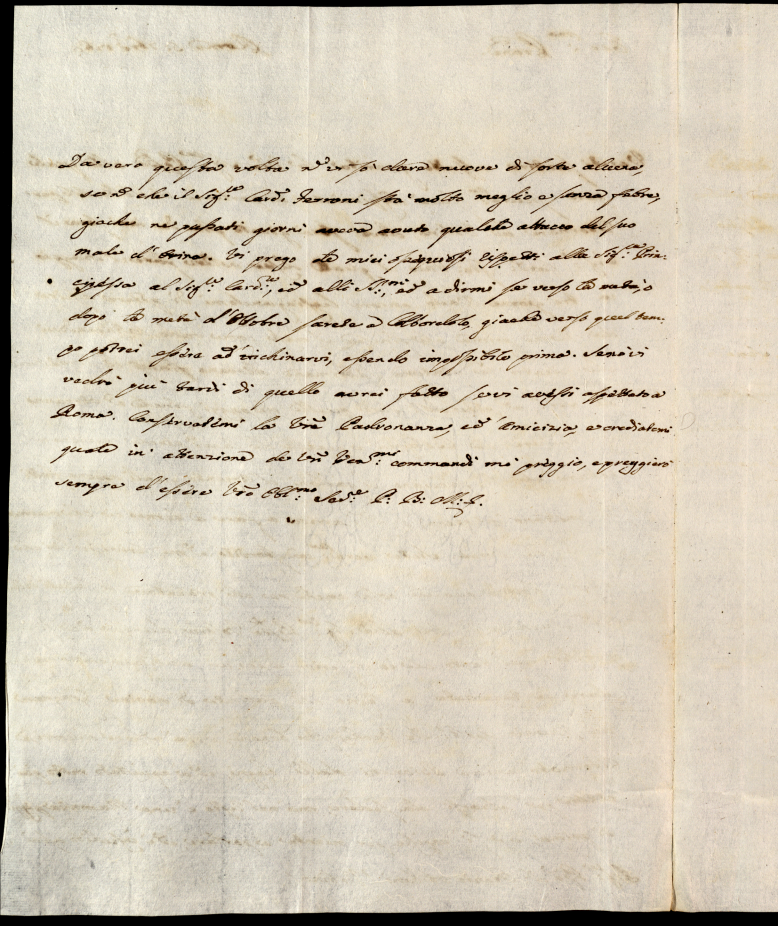 Da vero questa volta nº vi sò dare nuove di sorte alcuna,
so nº che il Sigr. Card. Ferroni stà molto meglio e senza febre,
giache ne passati giorni aveva avuto qualche attacco del suo
male d'orina. Vi prego de miei ossequiosi rispetti alla Sigra. Prin=
cipessa al Sigr. Cardle, ed alli Sri, ed a dirmi se verso la metà, o
dopo la metà d'Ottobre sarete a, giachè verso quel tem=
po potrei essere ad inchinarvi, essendo impossibile prima. Se non vi
vedrò più tardi di quello avrei fatto se vi avessi aspettato a
Roma. Conservatemi la Vra Padronanza, ed Amicizia, e crediatemi
quale in attenzione de Vri Venmi commandi mi preggio, e preggierò
sempre d'essere Vro Obblmo Serre P. B. M. S.